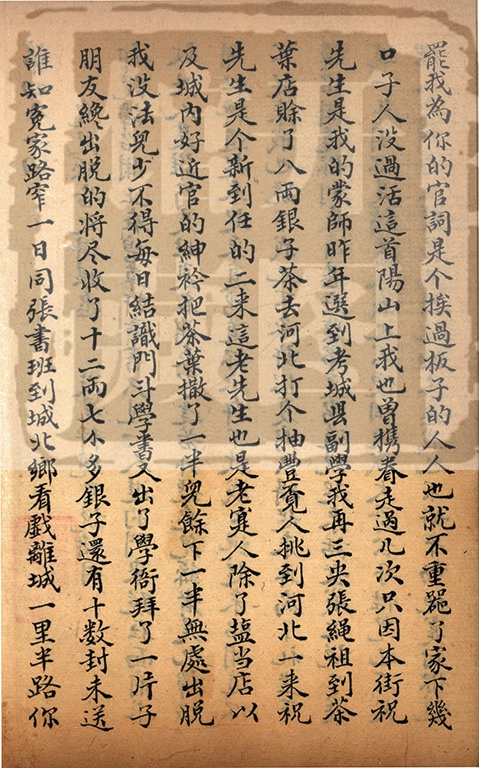 罷我為你的官詞是个挨過板子的人人也就不重噐了家下幾
口子人没過活這首陽山上我也曾携眷走過几次只因本街祝
先生是我的蒙師昨年選到考城县副學我再三央張繩祖到茶
葉店賒了八兩銀子茶去河北打个抽豐覔人挑到河北一来祝
先生是个新到任的二来這老先生也是老寔人除了塩当店以
及城内好近官的紳衿把茶葉撒了一半兒餘下一半無處出脱
我没法兒少不得每日結識門斗學書又出了學衙拜了一片子
朋友纔出脱的将尽收了十二兩七个多銀子還有十数封未送
誰知寃家路窄一日同張書班到城北鄉看戲離城一里半路你